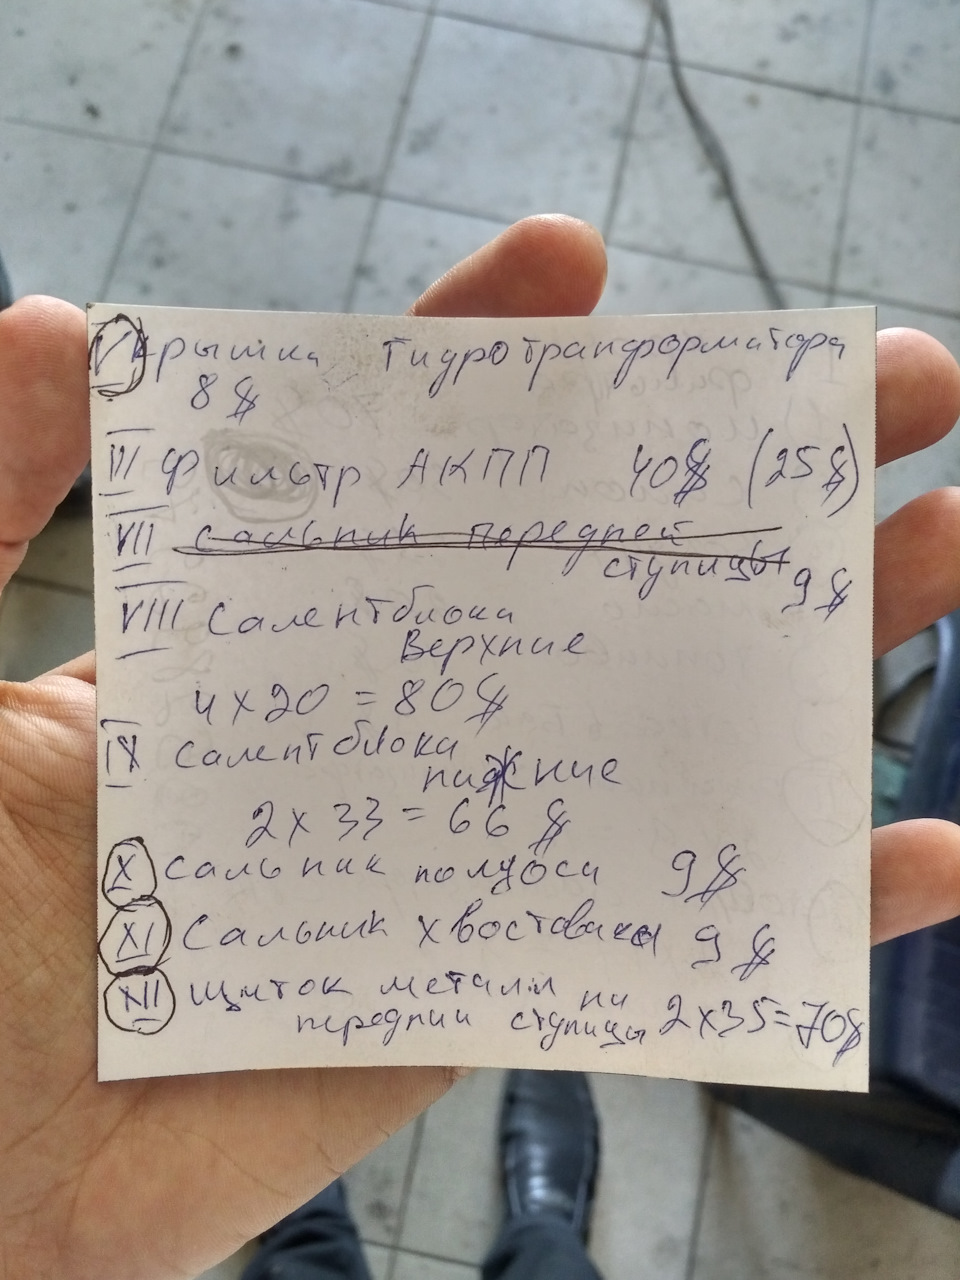 V Крышка гидротрансформатора
8$
VI Фильтр АКПП 40$ (25$)
VII сальник передней
ступицы 9$
VIII Салентблока
Верхние
4 x 20 = 80$
IX Салентблока
нижние
2 x 33 = 66 $
X сальник полуоси 9$
XI Сальник хвостовика 9 $
XII Щиток металл на
передние ступицы 2 x 35 = 70$